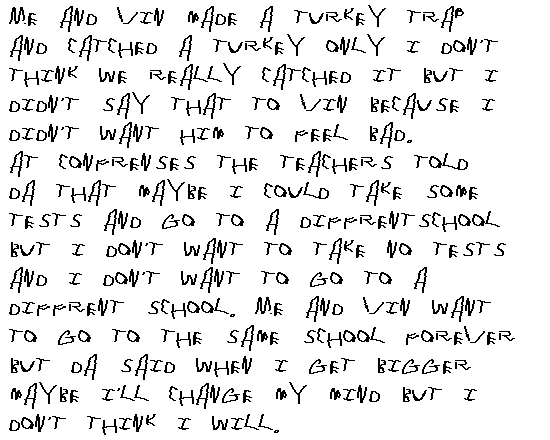 ME AND VIN MADE A TURKEY TRAP
AND CATCHED A TURKEY ONLY I DON'T
THINK WE REALLY CATCHED IT BUT I
DIDN'T SAY THAT TO VIN BECAUSE I
DIDN'T WANT HIM TO FEEL BAD.
AT CONFRENSES THE TEACHERS TOLD
DA THAT MAYBE I COULD TAKE SOME
TESTS AND GO TO A DIFFRENT SCHOOL
BUT I DON'T WANT TO TAKE NO TESTS
AND I DON'T WANT TO GO TO A
DIFFRENT SCHOOL. ME AND VIN WANT
TO GO TO THE SAME SCHOOL FOREVER
BUT DA SAID WHEN I GET BIGGER
MAYBE I'LL CHANGE MY MIND BUT I
DON'T THINK I WILL.